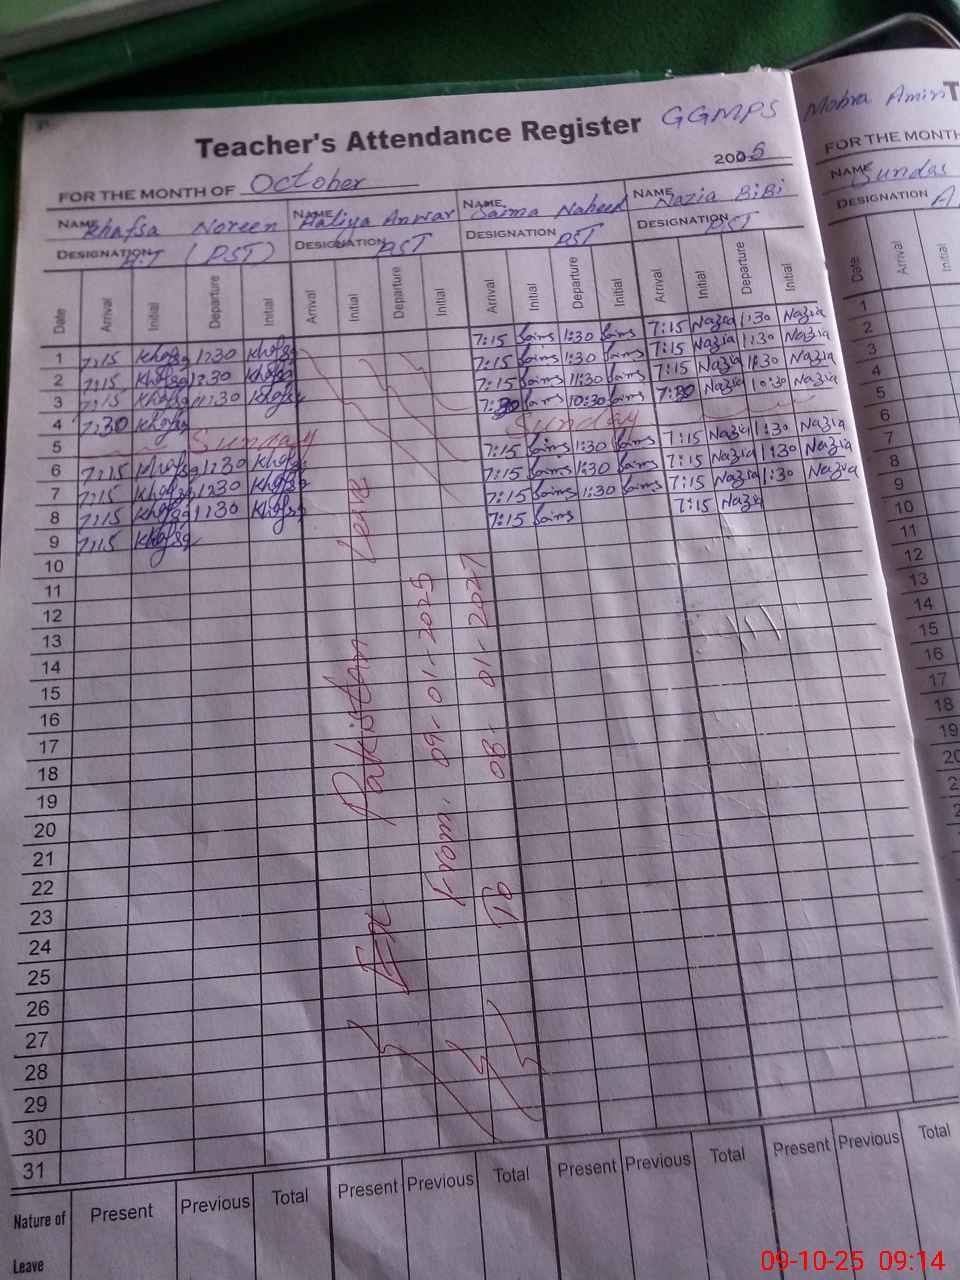 Teacher's Attendance Register GGMPS Mohra Amin T
2005
FOR THE MONTH OF October FOR THE MONTH
NAME Khafsa Noreen NAME Aaliya Anwar NAME Saima Naheed NAME Nazia BiBi NAME Sundas
DESIGNATION (PST) DESIGNATION PST DESIGNATION PST DESIGNATION PST DESIGNATION
Date Arrival Initial Departure Initial Arrival Initial Departure Initial Arrival Initial Departure Initial Arrival Initial Departure Initial Date Arrival Initial
1 7:15 Khafsa 1:30 Khafsa 7:15 Saima 1:30 Saima 7:15 Nazia 1:30 Nazia 1
2 7:15 Khafsa 1:30 Khafsa 7:15 Saima 1:30 Saima 7:15 Nazia 1:30 Nazia 2
3 7:15 Khafsa 11:30 Khafsa 7:15 Saima 11:30 Saima 7:15 Nazia 11:30 Nazia 3
4 7:30 Khafsa 7:30 Saima 10:30 Saima 7:30 Nazia 10:30 Nazia
5 Sunday Sunday 5
6 7:15 Khafsa 1:30 Khafsa 7:15 Saima 1:30 Saima 7:15 Nazia 1:30 Nazia 6
7 7:15 Khafsa 1:30 Khafsa 7:15 Saima 1:30 Saima 7:15 Nazia 1:30 Nazia 7
8 7:15 Khafsa 1:30 Khafsa 7:15 Saima 1:30 Saima 7:15 Nazia 1:30 Nazia 8
9 7:15 Khafsa 7:15 Saima 7:15 Nazia 9
10 10
11 11
12 12
13 13
14 14
15 15
16 16
17 17
18 18
19 19
20
21
22
23
24
25
26
27
28
29
30
31
Ex Pakistan Leave
From 09-01-2025
To 08-01-2027
Nature of Leave Present Previous Total Present Previous Total Present Previous Total Present Previous Total
09-10-25 09:14